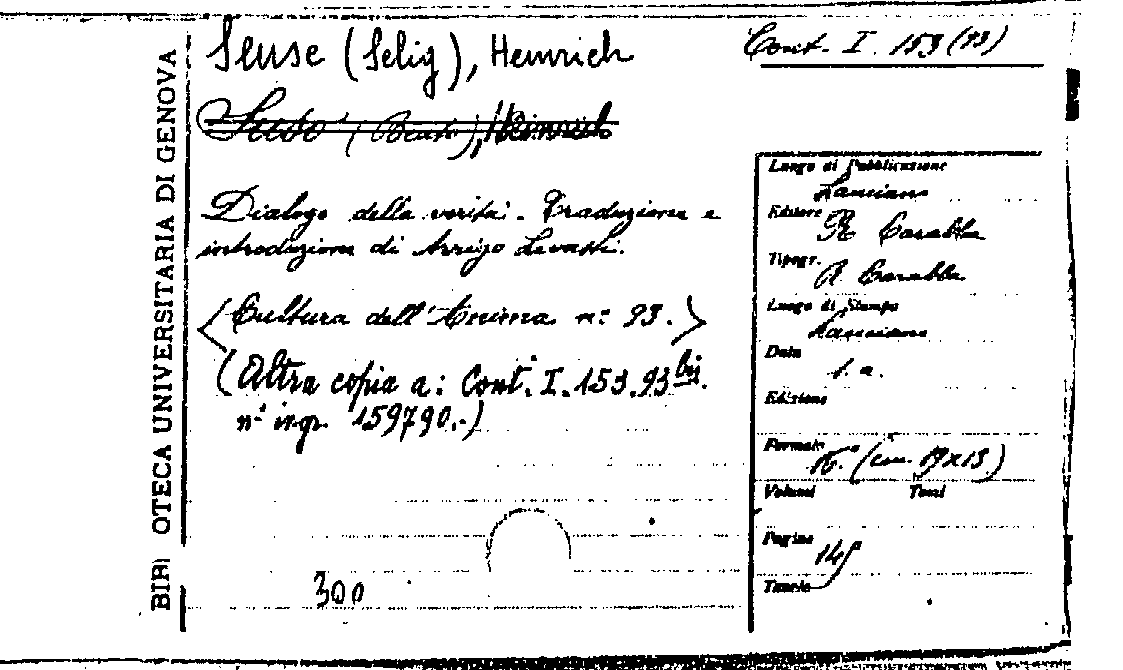 BIBI OTECA UNIVERSITARIA DI GENOVA
Seuse (Selig), Heinrich
Cont. I. 153 (93)
Suso (Beato), Heinrich
Dialogo della verità. Traduzione e
introduzione di Arrigo Levasti.
<Cultura dell'Anima n° 93.>
(Altra copia a: Cont. I. 153.93 bis.
n° ingr. 159790.-)
300
Luogo di Pubblicazione
Lanciano
Editore R. Carabba
Tipogr. R. Carabba
Luogo di Stampa
Lanciano
Data s. a.
Edizione
Formato 16° (cm. 19x13)
Volumi Tomi
Pagine
Tavole